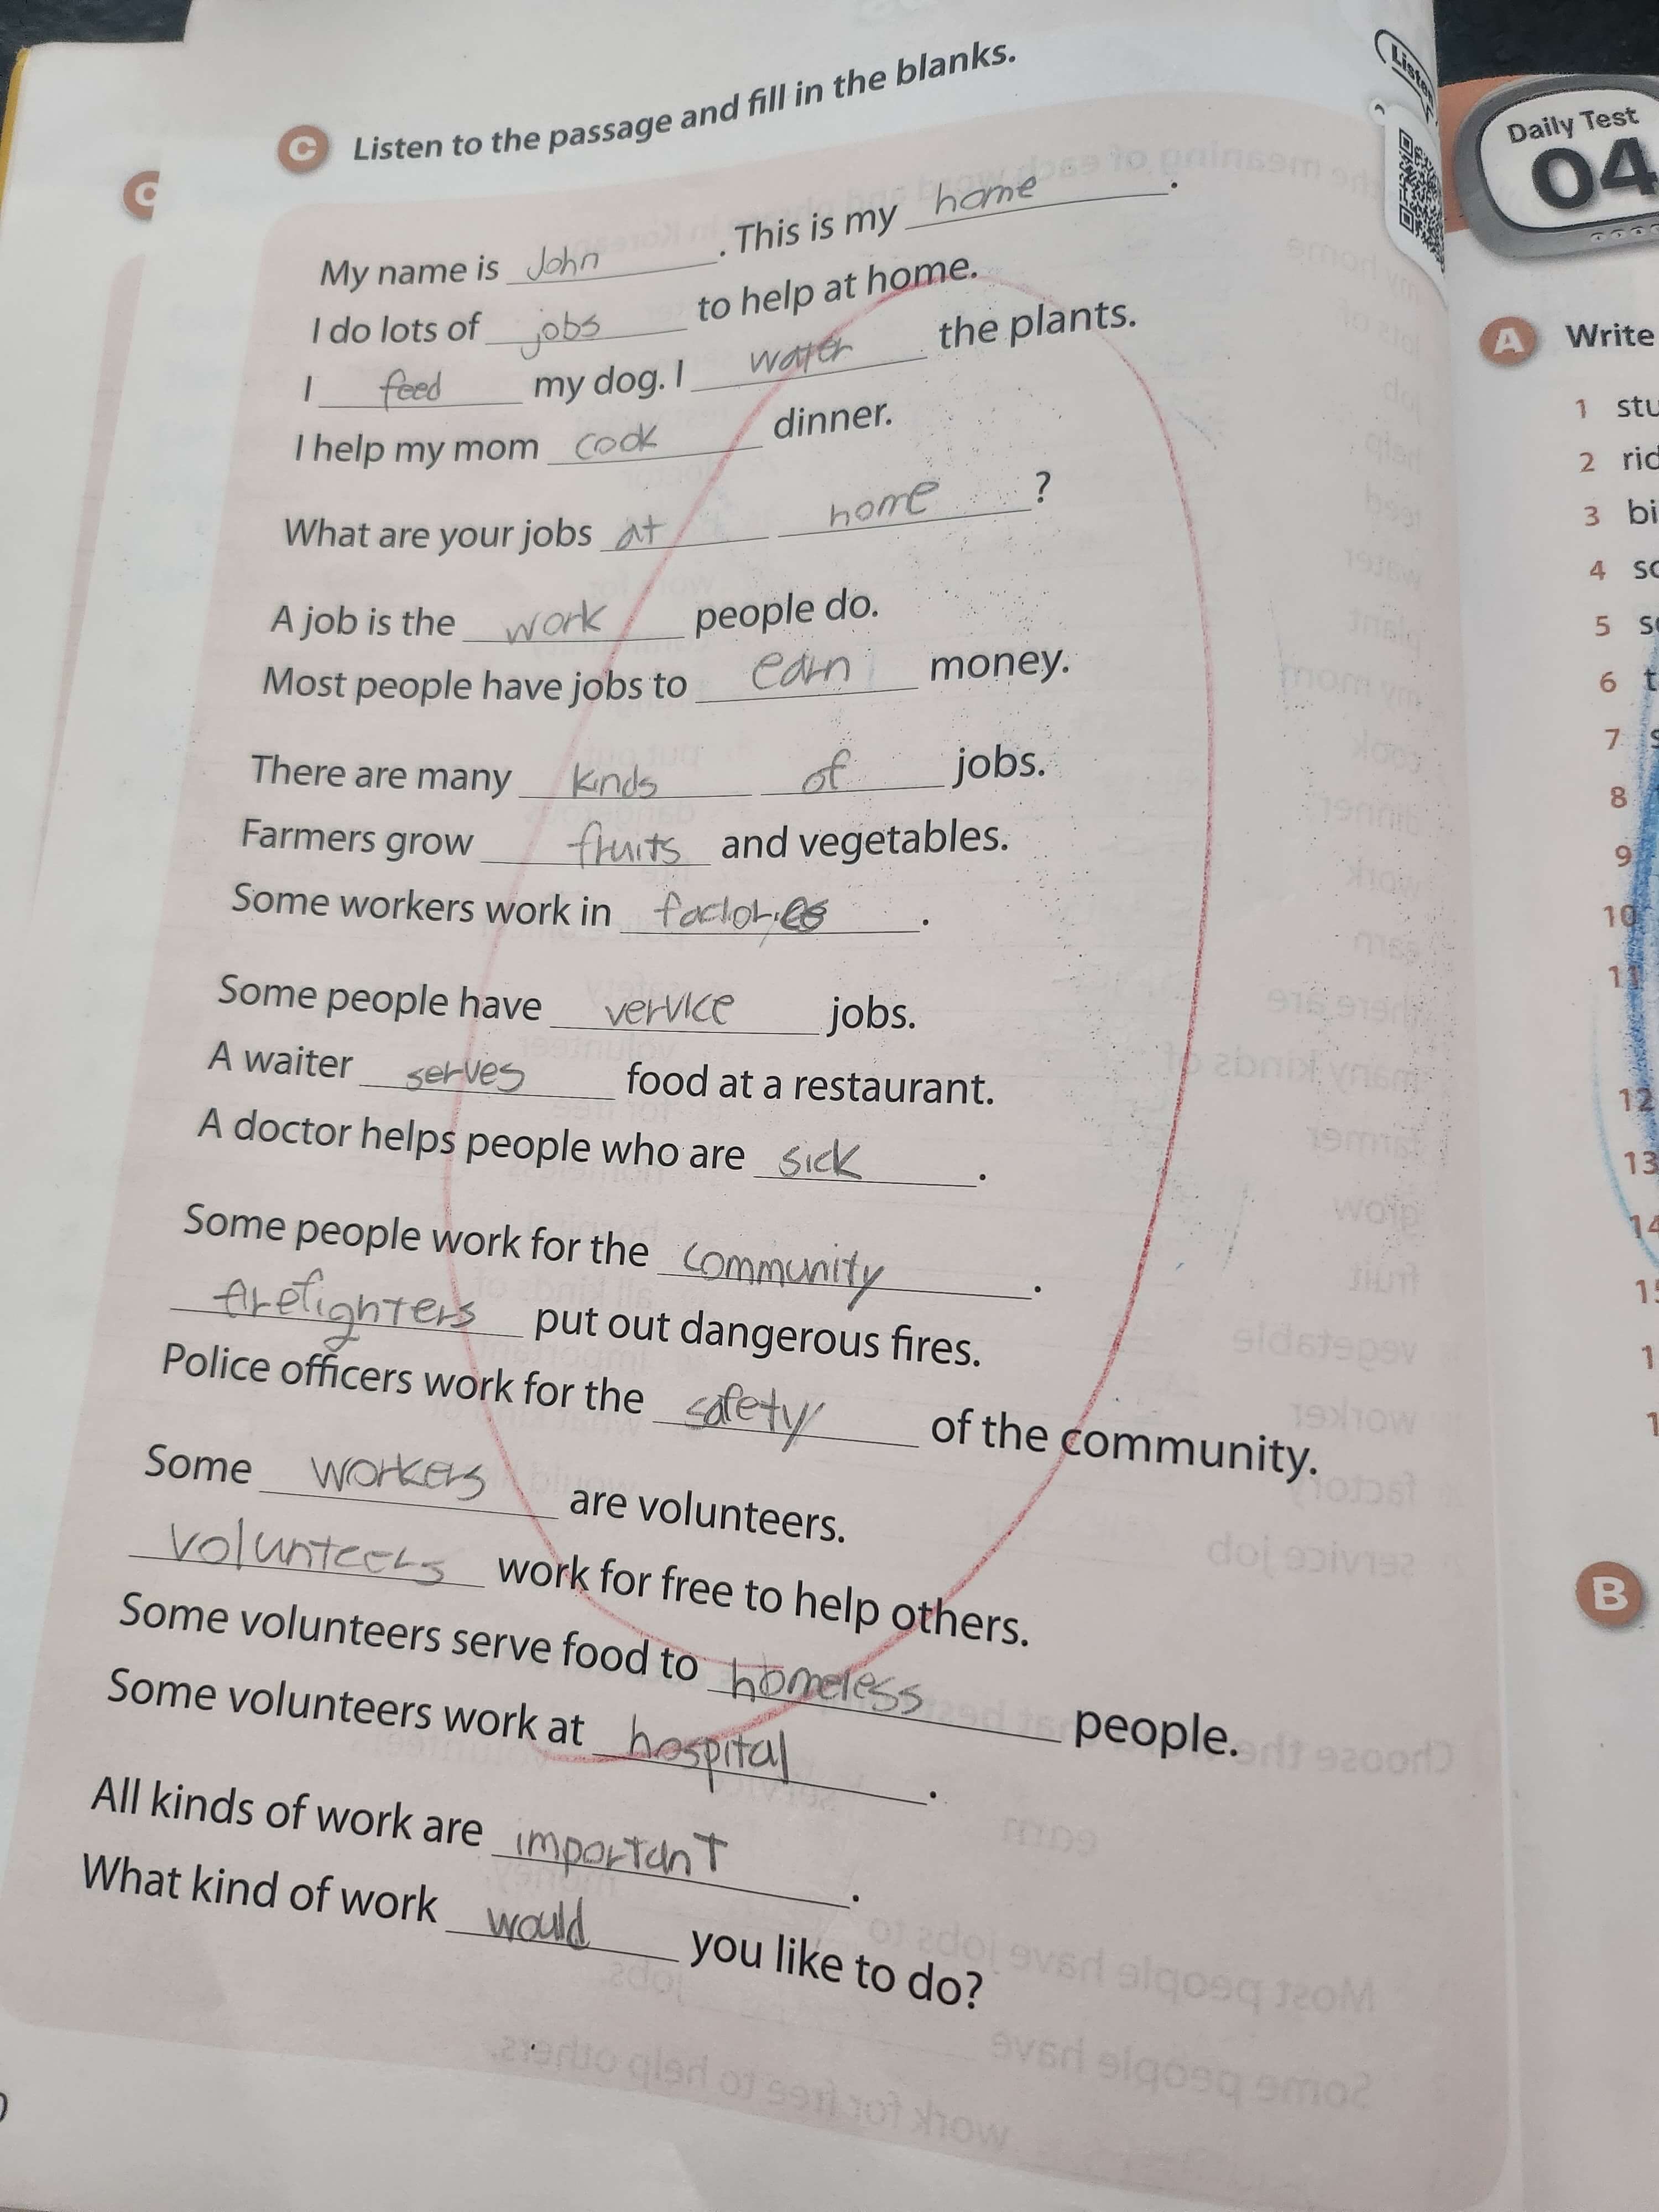 C Listen to the passage and fill in the blanks.
My name is John. This is my home.
I do lots of jobs to help at home.
I feed my dog. I water the plants.
I help my mom cook dinner.
What are your jobs at home?
A job is the work people do.
Most people have jobs to earn money.
There are many kinds of jobs.
Farmers grow fruits and vegetables.
Some workers work in factories.
Some people have vervice jobs.
A waiter serves food at a restaurant.
A doctor helps people who are sick.
Some people work for the community.
firefighters put out dangerous fires.
Police officers work for the safety of the community.
Some workers are volunteers.
volunteers work for free to help others.
Some volunteers serve food to homeless people.
Some volunteers work at hospital.
All kinds of work are important.
What kind of work would you like to do?
Daily Test
04
A Write
1
2
3
4
5
6
7
8
9
10
11
12
13
14
B